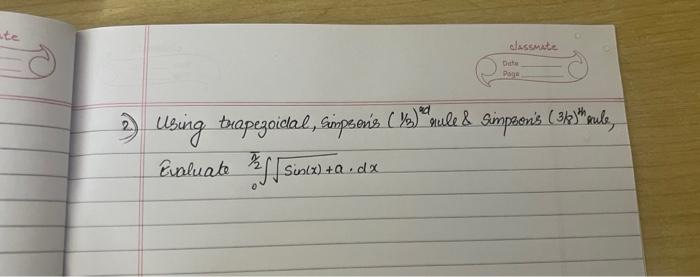 te
classmate
Date
Page
2) Using trapezoidal, Simpson's (1/3)rd rule & Simpson's (3/8)th rule,
Evaluate π/2∫0 √sin(x) + a . dx